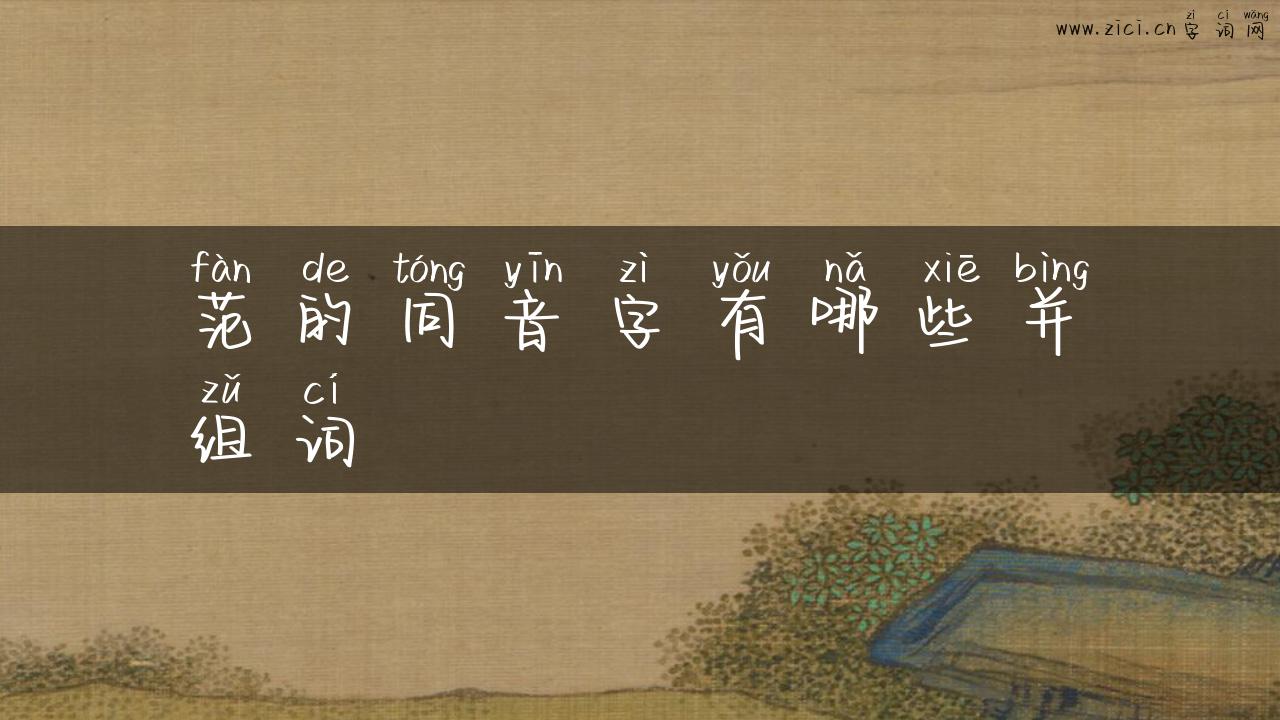 zì cí wǎng
www.zici.cn 字 词 网
fàn de tóng yīn zì yǒu nǎ xiē bìng
范 的 同 音 字 有 哪 些 并
zǔ cí
组 词